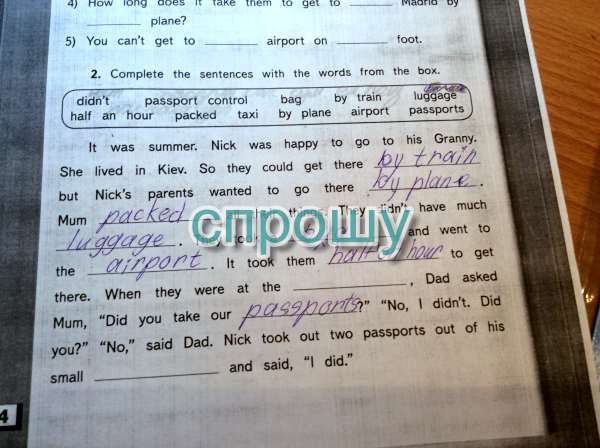 4) How long does it take them to get to ______ Madrid by
______ plane?
5) You can't get to ______ airport on ______ foot.
2. Complete the sentences with the words from the box.
didn't passport control bag by train luggage
half an hour packed taxi by plane airport passports
It was summer. Nick was happy to go to his Granny.
She lived in Kiev. So they could get there by train
but Nick's parents wanted to go there by plane.
Mum packed They didn't have much
luggage. and went to
the airport. It took them half a hour to get
there. When they were at the ______, Dad asked
Mum, "Did you take our passports?" "No, I didn't. Did
you?" "No," said Dad. Nick took out two passports out of his
small ______ and said, "I did."
спрошу
4